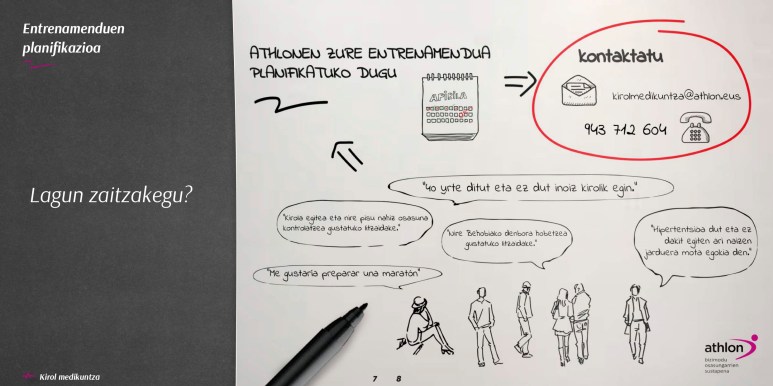 Entrenamenduen
planifikazioa
Lagun zaitzakegu?
Kirol medikuntza
ATHLONEN ZURE ENTRENAMENDUA
PLANIFIKATUKO DUGU
kontaktatu
kirolmedikuntza@athlon.eus
943 712 604
"40 urte ditut eta ez dut inoiz kirolik egin."
"Kirola egitea eta nire pisu nahiz osasuna
kontrolatzea gustatuko litzaidake."
"Nire Behobiako denbora hobetzea
gustatuko litzaidake."
"Hipertentsioa dut eta ez
dakit egiten ari naizen
jarduera mota egokia den."
"Me gustaría preparar una maratón"
athlon
bizimodu
osasungarriaren
sustapena
7 8